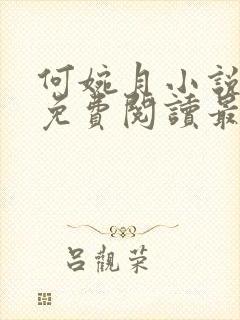 何婉月小說
免費閱讀最
呂觀荣